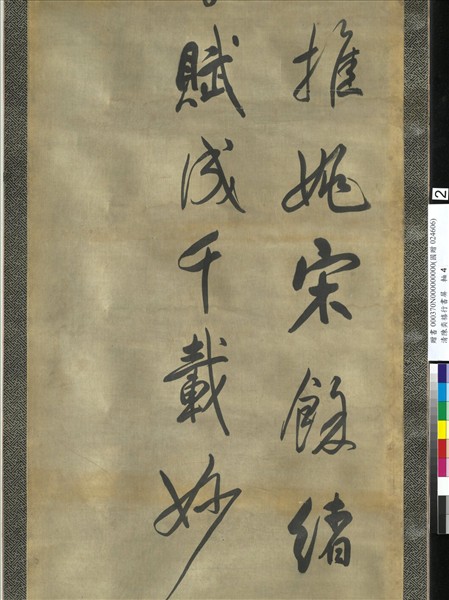 推姚宋餘緒
賦成千載妙
2
贈書000370N000000000(國贈 024606)
清陳奕禧行書屏 軸 4